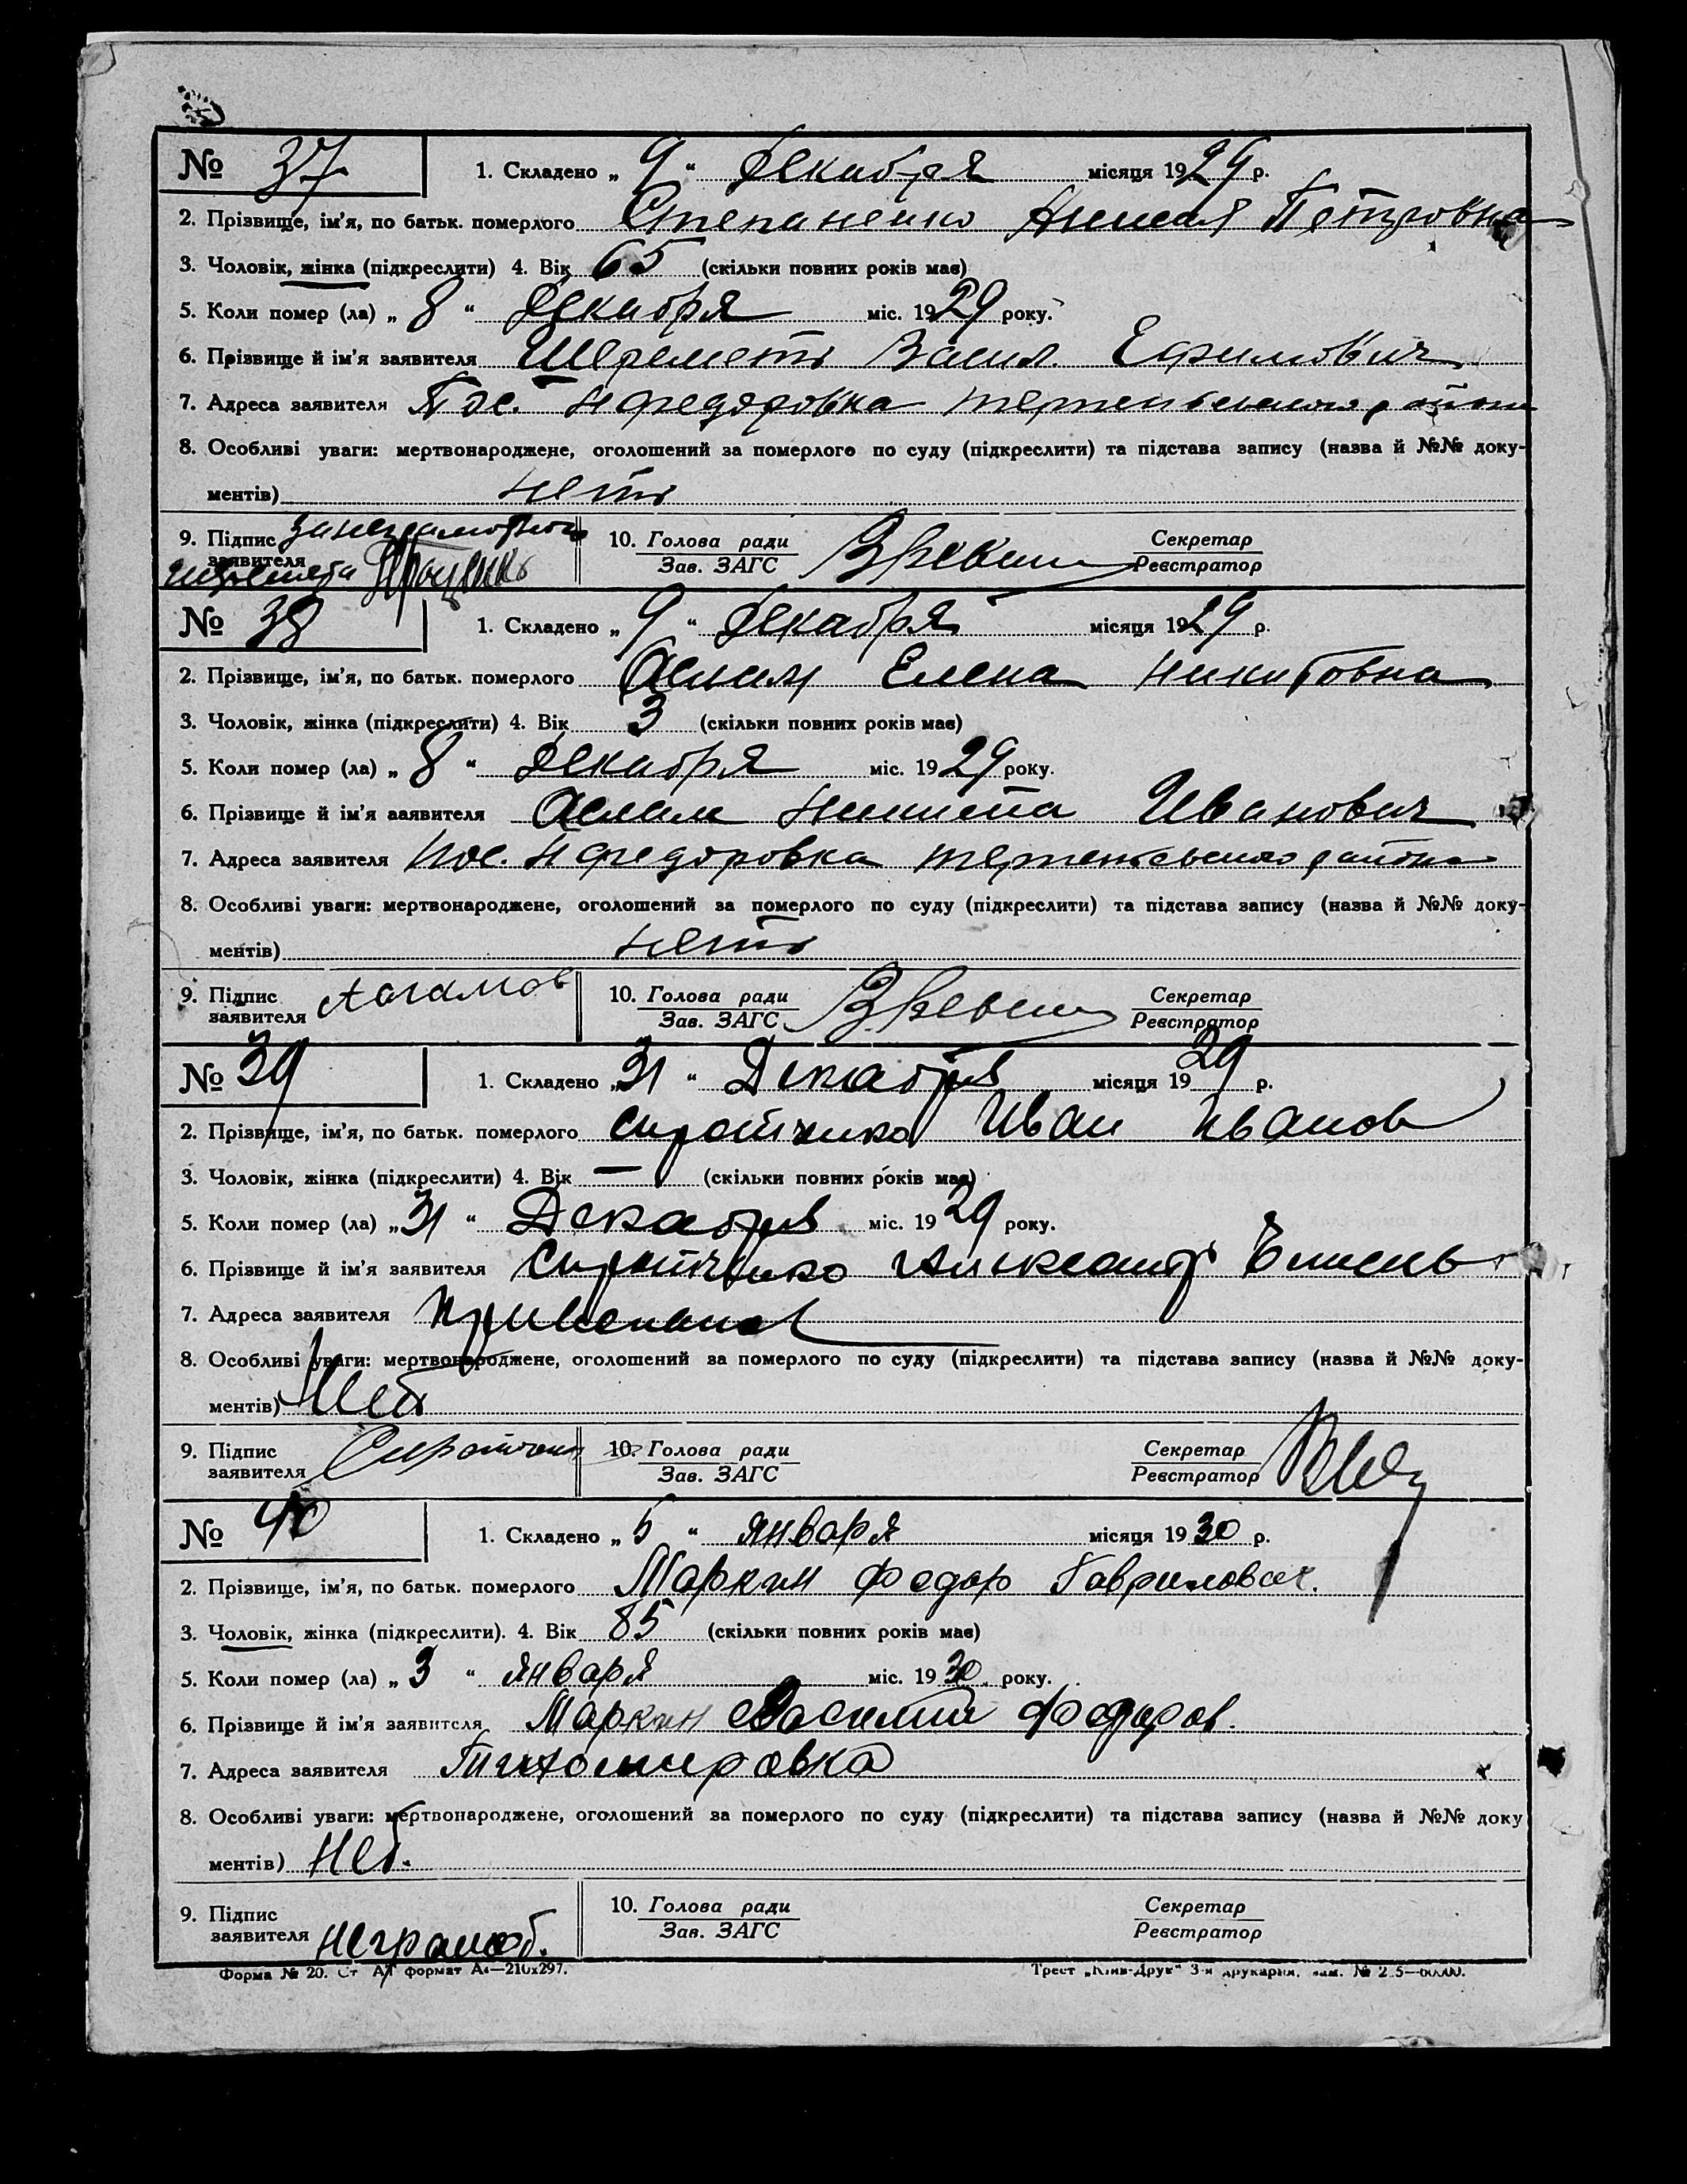 № 37 1. Складено „ 9 “ Декабря місяця 1929 р.
2. Прізвище, ім'я, по батьк. померлого Степаненко Петровна
3. Чоловік, жінка (підкреслити) 4. Вік 65 (скільки повних років має)
5. Коли помер (ла) „ 8 “ Декабря міс. 1929 року.
6. Прізвище й ім'я заявителя Шереметъ Васил. Ефимович
7. Адреса заявителя Пос. Нфедоровка района
8. Особливі уваги: мертвонароджене, оголошений за померлого по суду (підкреслити) та підстава запису (назва й №№ доку-
ментів) нетъ
9. Підпис 10. Голова ради Секретар
заявителя Зав. ЗАГС Реєстратор
№ 38 1. Складено „ 9 “ Декабря місяця 1929 р.
2. Прізвище, ім'я, по батьк. померлого Аслам Елена Никитовна
3. Чоловік, жінка (підкреслити) 4. Вік 3 (скільки повних років має)
5. Коли помер (ла) „ 8 “ Декабря міс. 1929 року.
6. Прізвище й ім'я заявителя Аслам Никита Иванович
7. Адреса заявителя Пос. Нфедоровка района
8. Особливі уваги: мертвонароджене, оголошений за померлого по суду (підкреслити) та підстава запису (назва й №№ доку-
ментів) нетъ
9. Підпис 10. Голова ради Секретар
заявителя Зав. ЗАГС Реєстратор
№ 39 1. Складено „ 31 “ Декабря місяця 1929 р.
2. Прізвище, ім'я, по батьк. померлого Сиротенко Иван Иванов
3. Чоловік, жінка (підкреслити) 4. Вік — (скільки повних років має)
5. Коли помер (ла) „ 31 “ Декабря міс. 1929 року.
6. Прізвище й ім'я заявителя Сиротенко Александр
7. Адреса заявителя
8. Особливі уваги: мертвонароджене, оголошений за померлого по суду (підкреслити) та підстава запису (назва й №№ доку-
ментів) Нет
9. Підпис 10. Голова ради Секретар
заявителя Зав. ЗАГС Реєстратор
№ 40 1. Складено „ 5 “ января місяця 1930 р.
2. Прізвище, ім'я, по батьк. померлого Маркин Федор Гаврилович.
3. Чоловік, жінка (підкреслити). 4. Вік 85 (скільки повних років має)
5. Коли помер (ла) „ 3 “ января міс. 1930 року.
6. Прізвище й ім'я заявителя Маркин Василий Федоров.
7. Адреса заявителя Тихомировка
8. Особливі уваги: мертвонароджене, оголошений за померлого по суду (підкреслити) та підстава запису (назва й №№ доку
ментів) Нет.
9. Підпис 10. Голова ради Секретар
заявителя неграмот. Зав. ЗАГС Реєстратор
Форма № 20. Ст А4 формат А4—210х297. Трест „Київ-Друк“ 3-я друкарня.